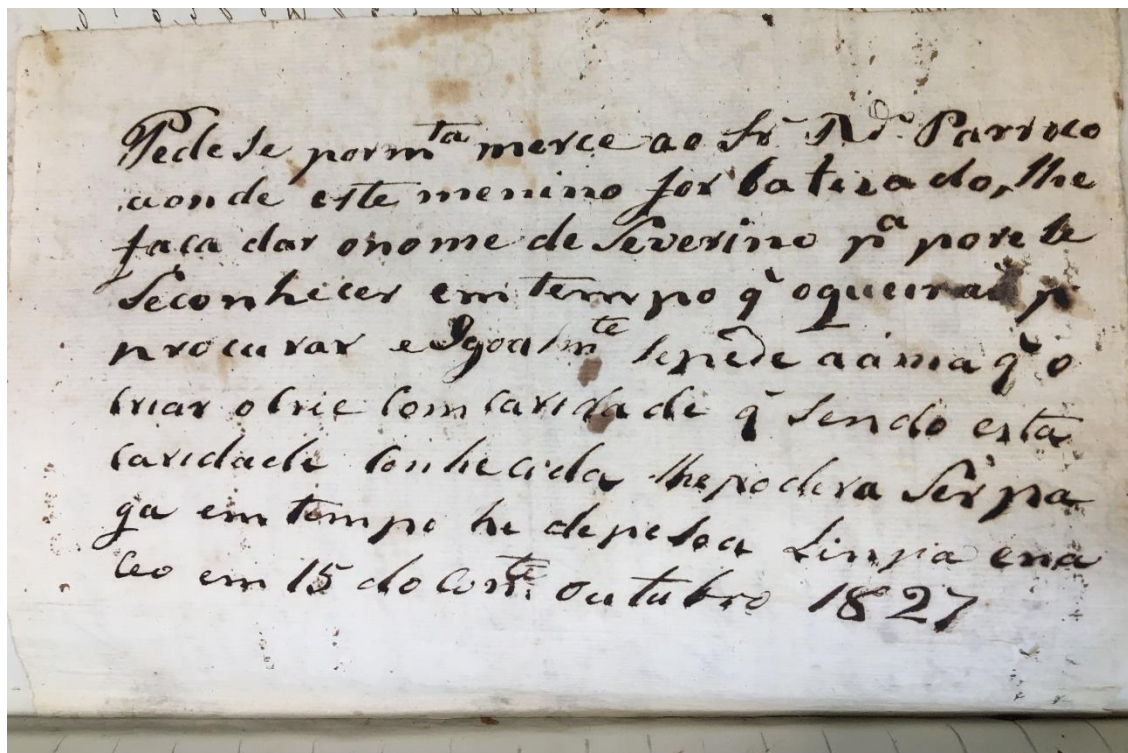 Pede se por mta merce ao Sr Rdo Parroco
aonde este menino for batizado, lhe
faca dar onome de Severino pa por este
Seconhecer em tempo q̃ oqueirão p
procurar e Igoalmte sepede aáma q̃ o
criar ocrie Com caridade q̃ Sendo esta
caridade Conhecida lhepodera Ser pa
ga em tempo he depesoa Limpa ena
ceo em 15 do Corte outubro 1827